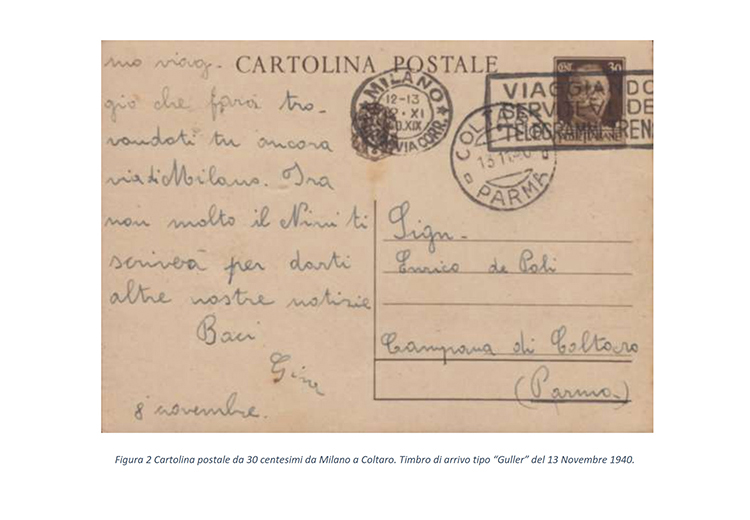 CARTOLINA POSTALE
mo viag-
gio che farai tro-
vandoti tu ancora
via di Milano. Fra
non molto il Nini ti
scriverà per darti
altre nostre notizie
Baci
Gina
8 novembre.
MILANO
12-13
XI
VIAGGIANDO
SERVITEVI DE
TELEGRAMMI TREN
COLTARO
13.11.40
PARMA
30
Sign.
Enrico de Poli
Campana di Coltaro
(Parma)
Figura 2 Cartolina postale da 30 centesimi da Milano a Coltaro. Timbro di arrivo tipo “Guller” del 13 Novembre 1940.